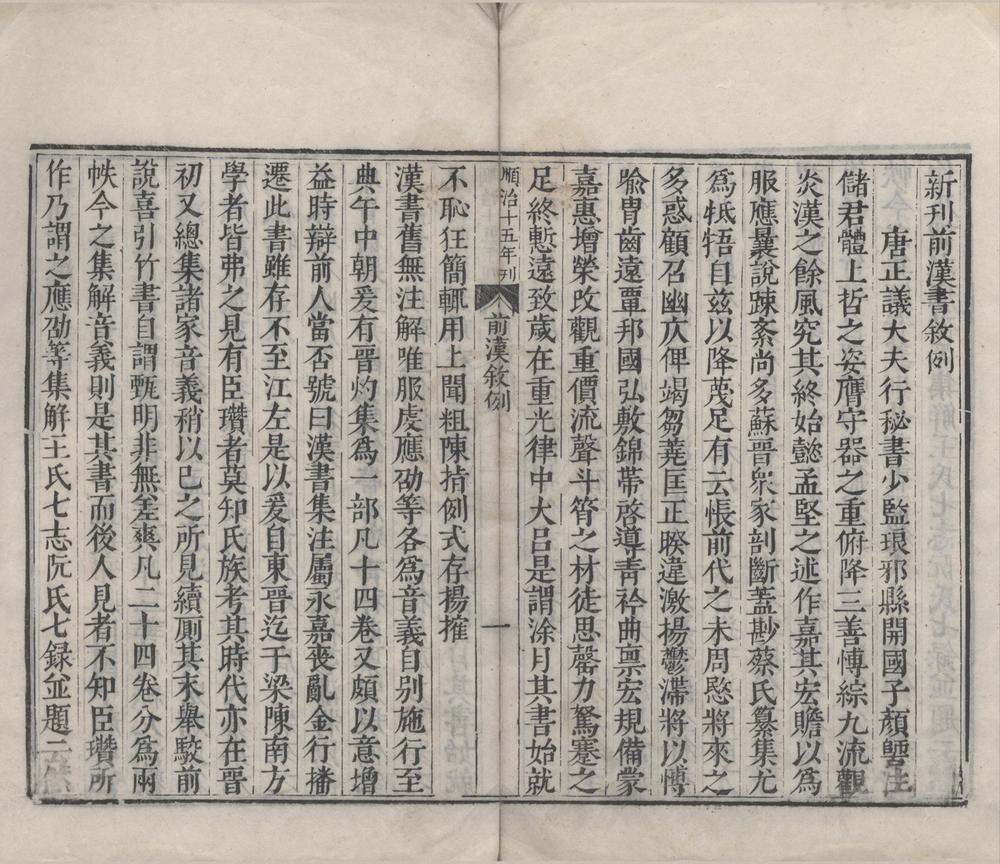 新刊前漢書敘例
唐正議大夫行秘書少監琅邪縣開國子顏師古注
儲君體上哲之姿膺守器之重俯降三善博綜九流觀
炎漢之餘風究其終始懿孟堅之述作嘉其宏贍以為
服應曩說踈紊尚多蘇晉衆家剖斷蓋尠蔡氏纂集尤
為牴牾自茲以降蔑足有云悵前代之未周愍將來之
多惑顧召幽仄俾竭芻蕘匡正睽違激揚鬱滯將以博
喻胄齒遠覃邦國弘敷錦帶啓導青衿曲禀宏規備蒙
嘉惠增榮改觀重價流聲斗筲之材徒思罄力駑蹇之
足終慙遠致歲在重光律中大呂是謂涂月其書始就
順治十五年刊 前漢敘例 一
不恥狂簡輒用上聞粗陳指例式存揚搉
漢書舊無注解唯服虔應劭等各為音義自別施行至
典午中朝爰有晉灼集為一部凡十四卷又頗以意增
益時辯前人當否號曰漢書集注屬永嘉喪亂金行播
遷此書雖存不至江左是以爰自東晉迄于梁陳南方
學者皆弗之見有臣瓚者莫知氏族考其時代亦在晉
初又總集諸家音義稍以己之所見續廁其末舉駮前
說喜引竹書自謂甄明非無差爽凡二十四卷分為兩
帙今之集解音義則是其書而後人見者不知臣瓚所
作乃謂之應劭等集解王氏七志阮氏七録並題云然